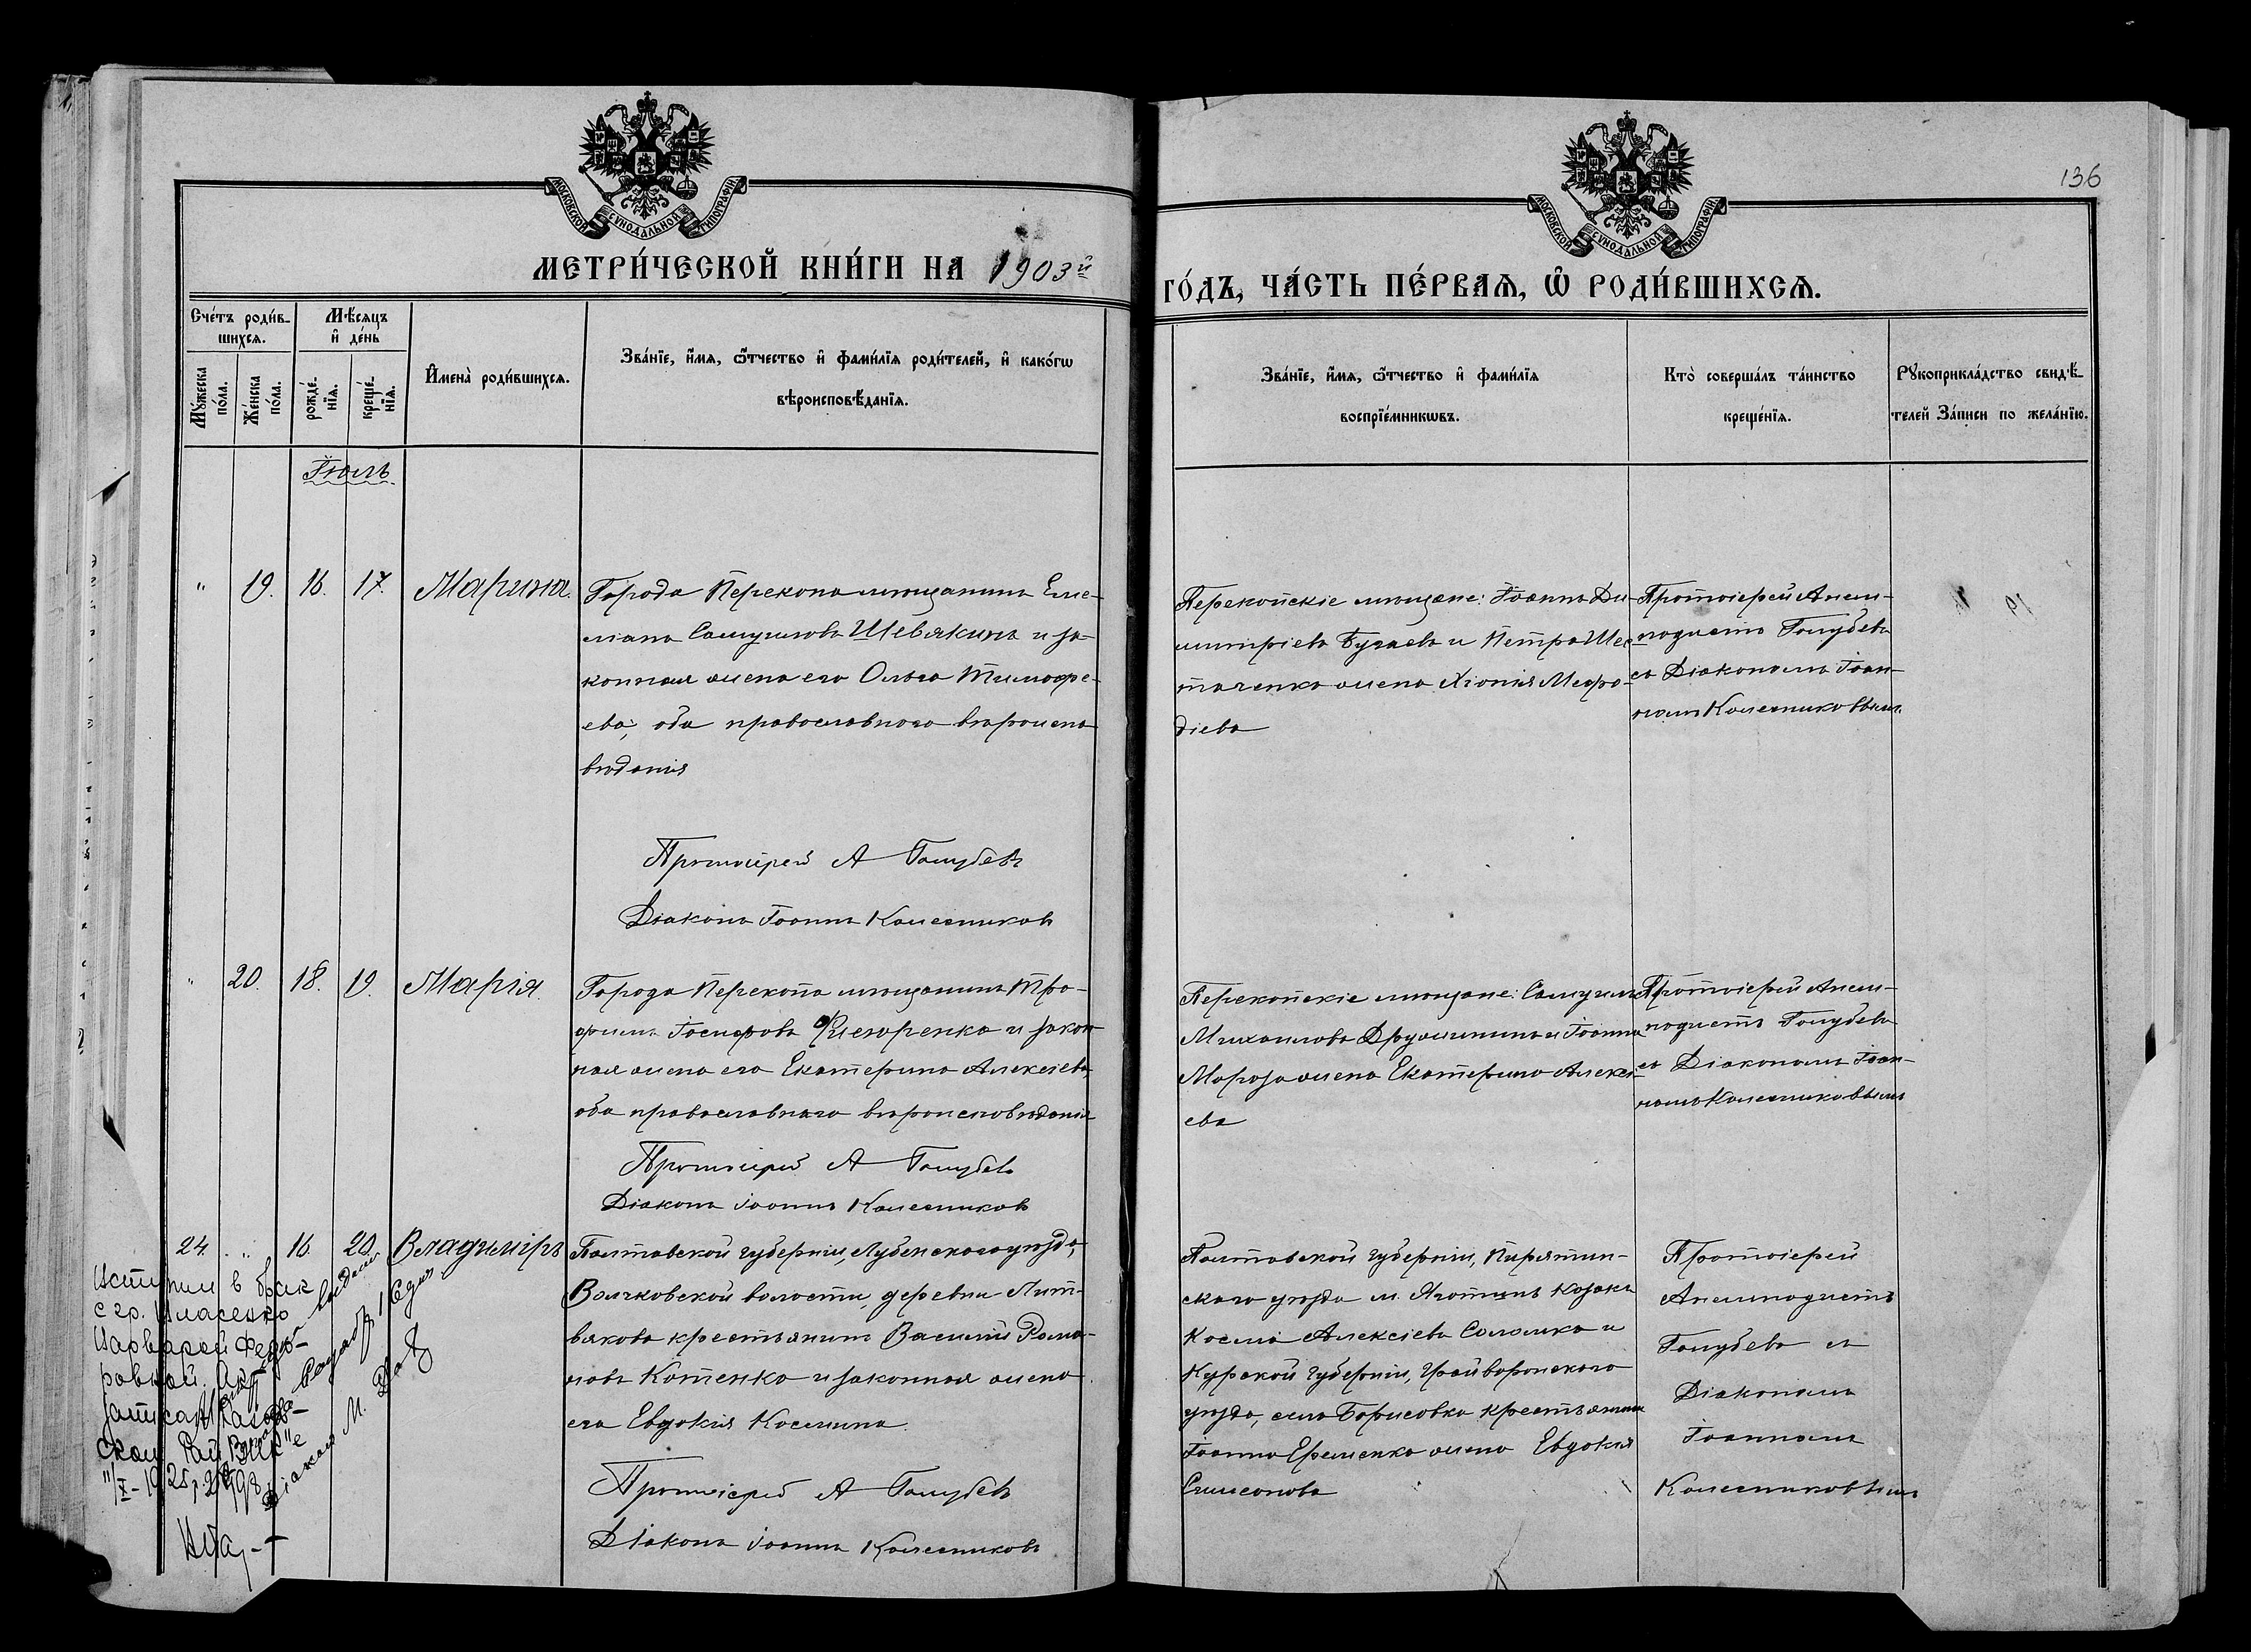 136
МОСКОВСКОЙ СѴНОДАЛЬНОЙ ТИПОГРАФІИ
МОСКОВСКОЙ СѴНОДАЛЬНОЙ ТИПОГРАФІИ
МЕТРИ́ЧЕСКОЙ КНИ́ГИ НА 1903й
ГО́ДЪ, ЧА́СТЬ ПЕ́РВАѦ, Ѡ҆ РОДИ́ВШИХСѦ.
Сче́тъ роди́в-
шихсѧ.
Мꙋ́жеска
по́ла.
Же́нска
по́ла.
Мѣ́сѧцъ
и҆ де́нь
рожде́-
нїѧ.
креще́-
нїѧ.
И҆мена̀ роди́вшихсѧ.
Зва́нїе, и҆́мѧ, ѻ҆́тчество и҆ фами́лїѧ роди́телей, и҆ како́гѡ
вѣроисповѣ́данїѧ.
Зва́нїе, и҆́мѧ, ѻ҆́тчество и҆ фами́лїѧ
воспрїе́мникѡвъ.
Кто̀ соверша́лъ та́инство
креще́нїѧ.
Рꙋкоприкла́дство свидѣ́-
телей за́писи по жела́нїю.
Іюль
" 19. 16. 17. Марина.
Города Перекопа мѣщанинъ Еме-
ліанъ Самуиловъ Шевякинъ и за-
конная жена его Ольга Тимофе-
ева; оба православнаго вѣроиспо-
вѣданія
Протоіерей А Голубевъ
Діаконъ Іоаннъ Колесниковъ
Перекопскіе мѣщане: Іоаннъ Ди-
митріевъ Бугаевъ и Петра Шес-
таченко жена Хіонія Меѳо-
діева
Протоіерей Анем-
подистъ Голубевъ
съ Діакономъ Іоан-
номъ Колесниковымъ.
" 20. 18. 19. Марія.
Города Перекопа мѣщанинъ Тро-
фимъ Іосифовъ и закон-
ная жена его Екатерина Алексіева,
оба православнаго вѣроисповѣданія
Протоіерей А Голубевъ
Діаконъ Іоаннъ Колесниковъ
Перекопскіе мѣщане: Самуилъ
Михаиловъ Дружининъ и Іоанна
Мороза жена Екатерина Алексі-
ева
Протоіерей Анем-
подистъ Голубевъ
съ Діакономъ Іоан-
номъ Колесниковымъ
24. " 16. 20. Владиміръ
Полтавской губерніи, Лубенскаго уѣзда,
Волчковской волости, деревни Лит-
вякова крестьянинъ Василій Рома-
новъ Котенко и законная жена
его Евдокія Косьмина.
Протоіерей А Голубевъ
Діаконъ Іоаннъ Колесниковъ
Полтавской губерніи, Пирятин-
скаго уѣзда м. Яготинъ козакъ
Косма Алексіевъ Соломка и
Курской губерніи, Грайворонскаго
уѣзда, села Борисовка крестьянина
Іоанна Еременко жена Евдокія
Симеонова
Протоіерей
Анемподистъ
Голубевъ съ
Діакономъ
Іоанномъ
Колесниковымъ
в брак
с гр. Власенко
Варварой Федо-
ровной. Акт